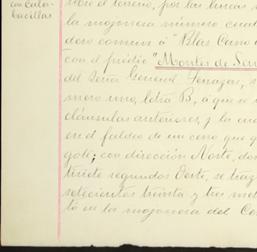 en Cala-
bacillas
libre el terreno, por las lineas
la mojonera número cuat
dero comun á "Blas Cano
con el predio "Montes de San
del Señor General Genaro
mero uno, letra B, á que se
cláusulas anteriores, y la cu
en el faldeo de un cerro que q
gote; con dirección Norte, do
tiocho segundos Oeste, se traz
setecientos treinta y tres met
to en la mojonera del Ca